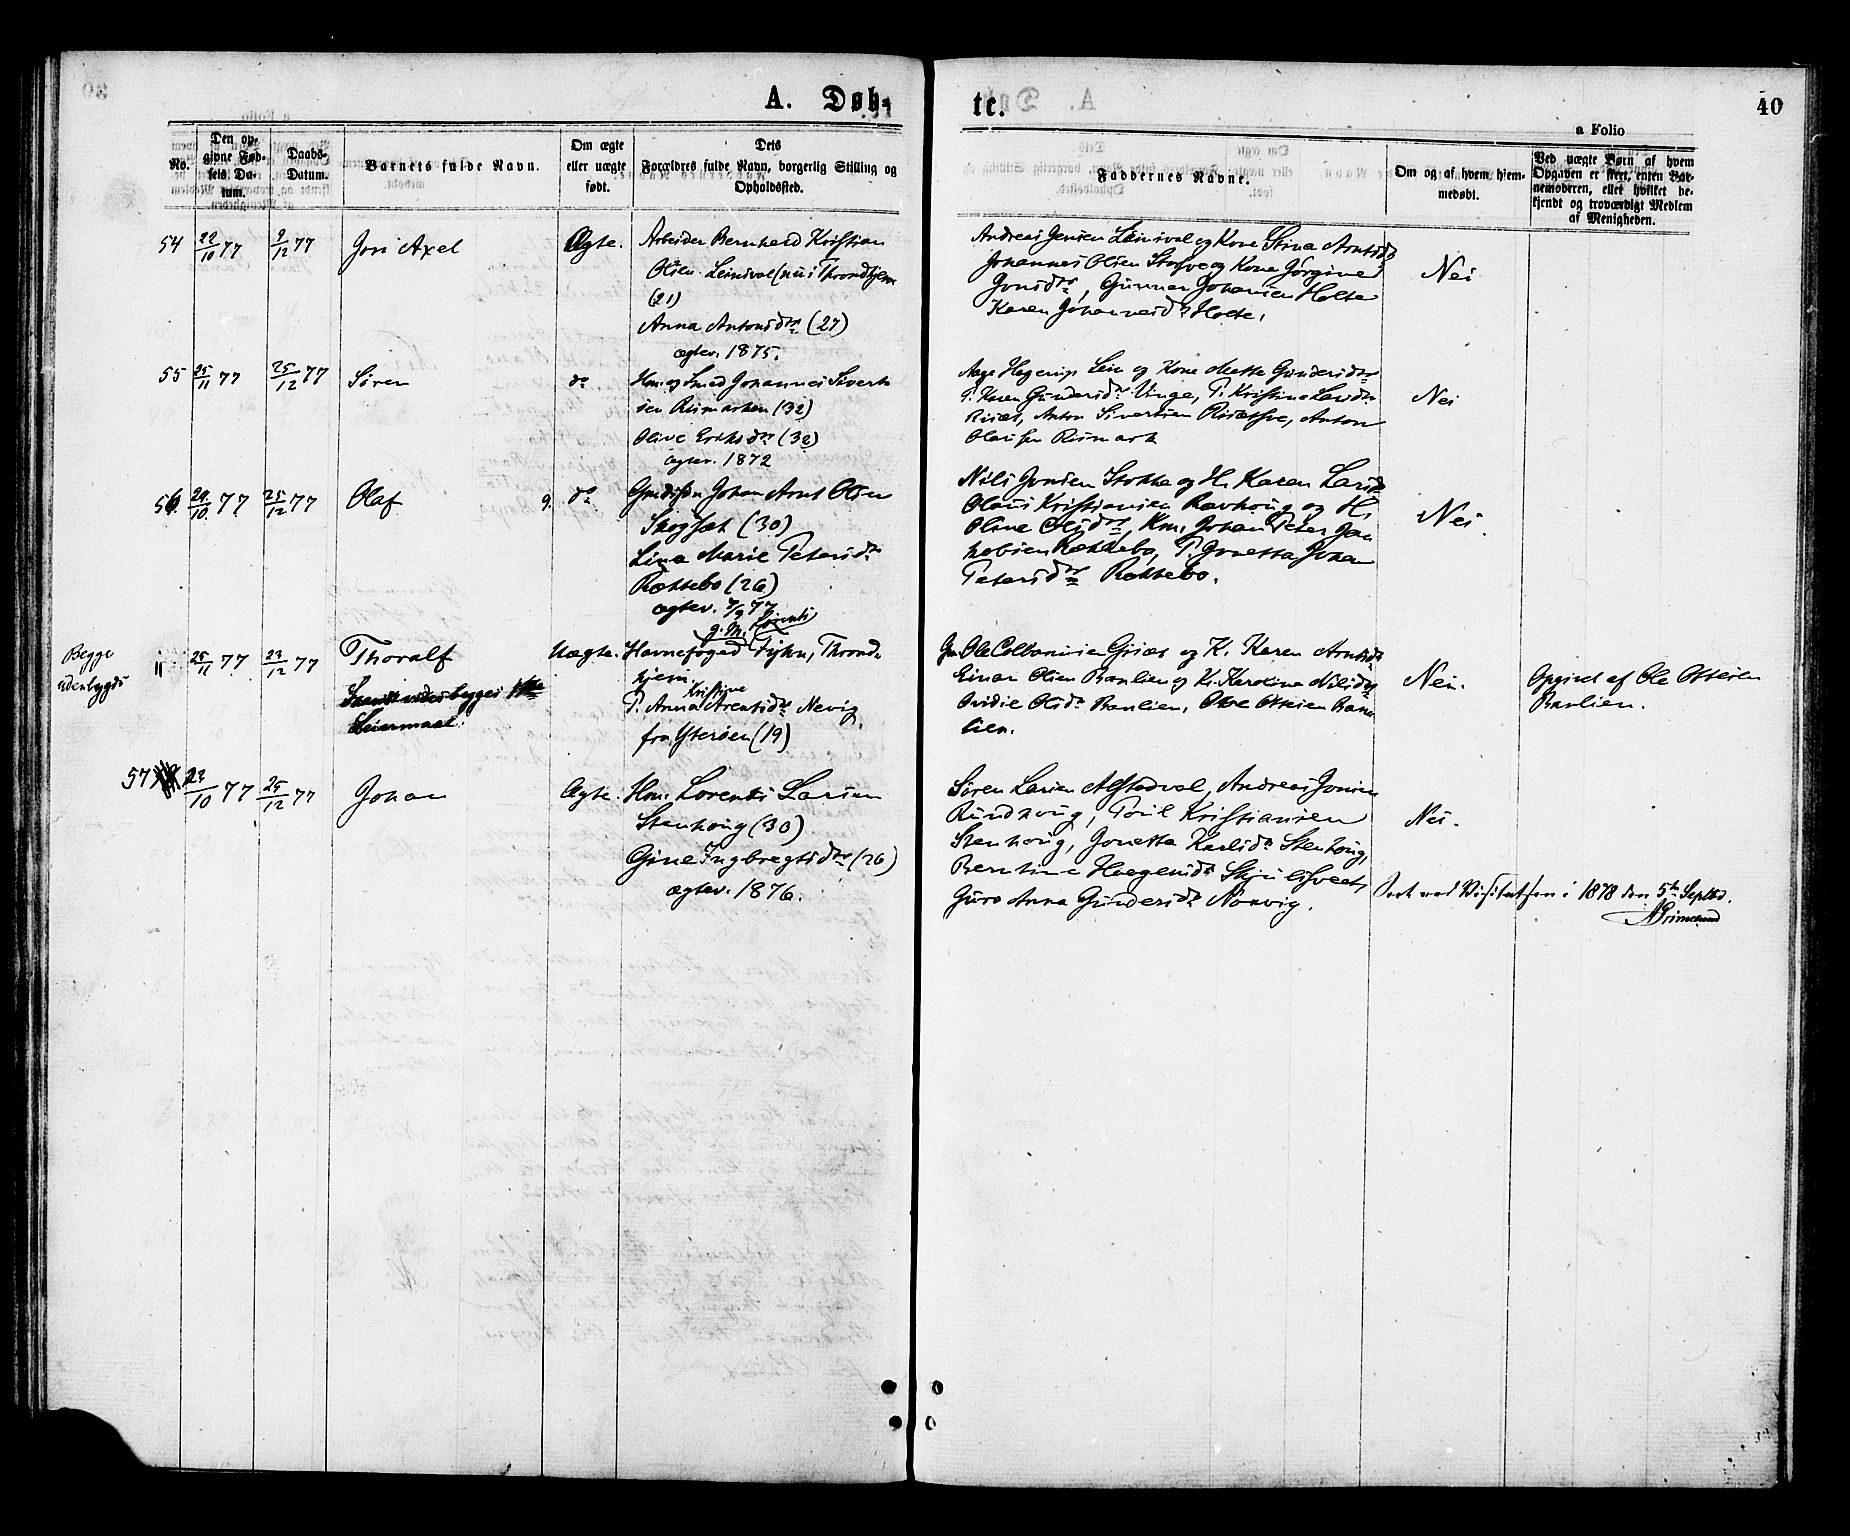 A. Døb-
te.
40
a Folio
No.
Den op-
givne Fød-
sels Da-
tum.
Daabs-
Datum.
Barnets fulde Navn.
Om ægte
eller uægte
født.
Dets
Forældres fulde Navn, borgerlig Stilling og
Opholdssted.
Faddernes Navne.
Om og af hvem hjem-
medøbt.
Ved uægte Børn af hvem
Opgaven er skeet, enten Bar-
nemoderen, eller hvilket be-
kjendt og troværdigt Medlem
af Menigheden.
54
22/10 77
9/12 77
Jon Axel
Ægte.
Arbeider Bernhard Kristian
Olsen Leinsvol (nu i Throndhjem
(21)
Anna Antonsdtr (27)
ægtev. 1875.
Andreas Jensen Leinsvol og Kone Stina Arntsdr
Johannes Olsen og Kone Jørgine
Jonsdtr, Gunnar Johansen Holte
Karen Johannesdr Holte.
Nei
55
25/11 77
25/12 77
Søren
do
Hm. og Smed Johannes Sivert
sen Rismarken (32)
Olive Eriksdtr (32)
ægtev. 1872
Aage Hagerup Lein og Kone Mette Gundersdtr
P. Karen Gundersdr Vinge, P. Kristine Larsdtr
Anton Sivertsen Anton
Olausen Rismark
Nei
56.
29/10 77
25/12 77
Olaf
g. do
Gmdssøn Johan Arnt Olsen
Skogsæt (30)
Lina Marie Petersdr
Rokkebo (26)
ægtev. 7/9 77
Nils Jonsen Stokke og H. Karen Larsdr
Olaus Kristiansen Ravhoug og H.
Oline Olsdtr, Km. Johan Peter Jan
Rokkebo, P. Jonetta Johan
Petersdtr Rokkebo.
Nei.
Begge
udenbygds
"
25/11 77
23/12 77
Thoralf
Leiermaal.
Uægte.
g. M.
Havnefoged Fyhn, Thrond-
hjem.
Kristine
P. Anna Arentsdr Nevig
fra Ytterøen (19)
Gm. Ole Colbansen og K. Karen Arntsdr
Einar Olsen Banlien og K. Karoline Nilsdtr
Olsdr Banlien, Ottesen Ban
lien.
Nei.
Opgivet af Ole Ottesen
Banlien.
57
22/10 77
25/12 77
Johan
Ægte.
Hm. Lorents Larsen
Stenhoug (30)
Gine Ingbregtsdtr (26)
ægtev. 1876.
Søren Larsen Alstadvol, Andreas Jonsen
Rundhoug, Poul Kristiansen
Stenhoug, Jonetta Karlsdr Stenhoug,
Berntine Haagensdr
Guro Anna Gundersdr Norvig.
Nei.
Seet ved Visitatsen i 1878 den 5te Septbr.
AGrimelund